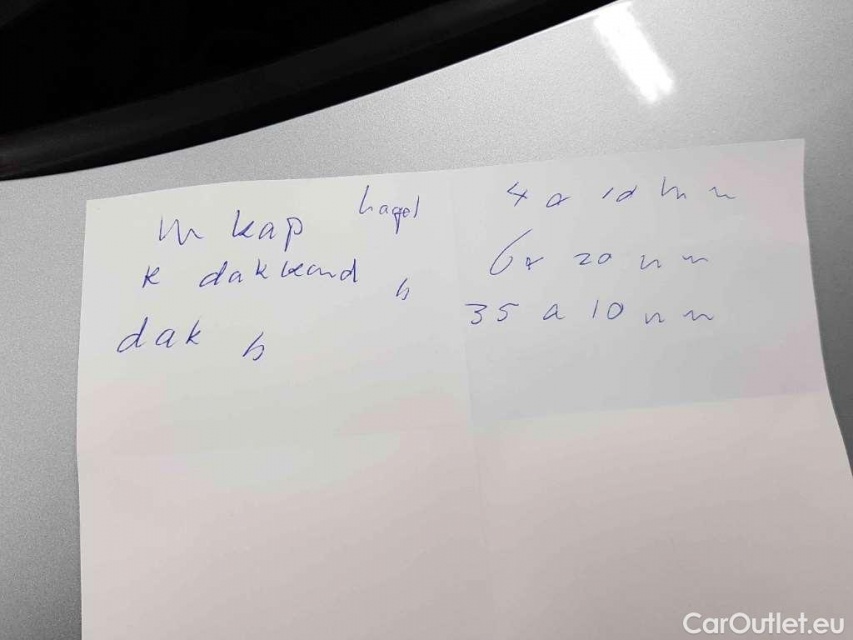 m kap hagel 4 a 10 mm
R dakrand h 6 a 20 mm
dak h 35 a 10 mm
CarOutlet.eu